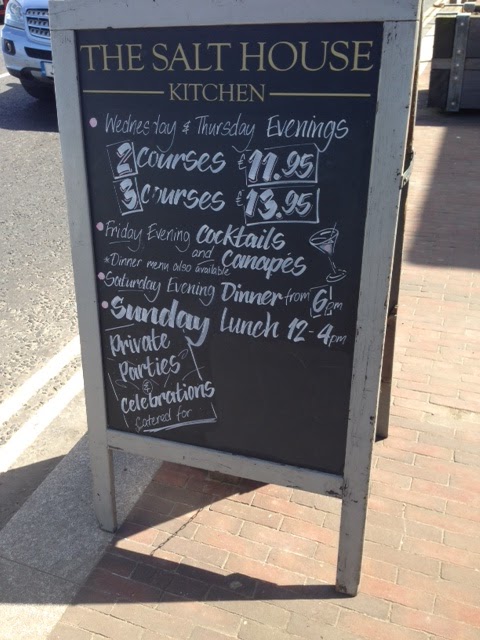 THE SALT HOUSE
KITCHEN
Wednesday & Thursday Evenings
2 courses £11.95
3 courses £13.95
Friday Evening Cocktails
and
*Dinner menu also available Canapés
Saturday Evening Dinner from 6pm
Sunday Lunch 12-4pm
Private
Parties
&
Celebrations
catered for